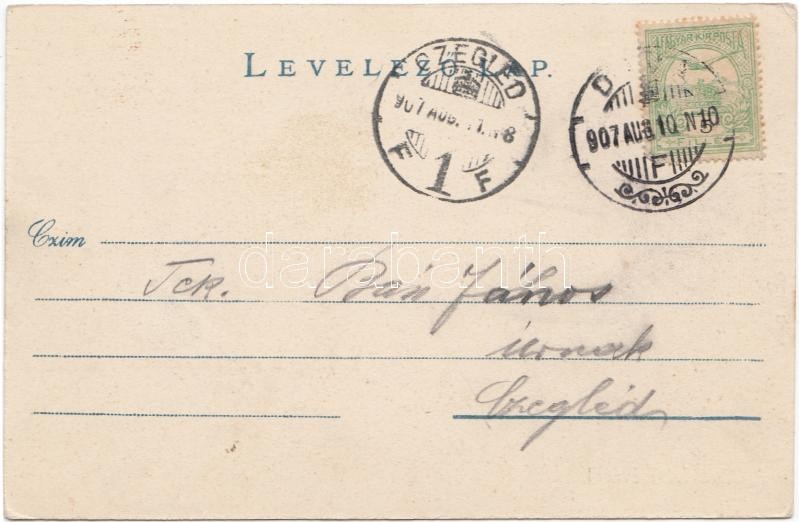 LEVELEZŐ-LAP.
CZEGLÉD
907 AUG. 11. N8
1
F
MAGYAR KIR. POSTA
5
D
907 AUG 10 N10
F
Czim
darabanth
Tek. Bán János
úrnak
Czegléd